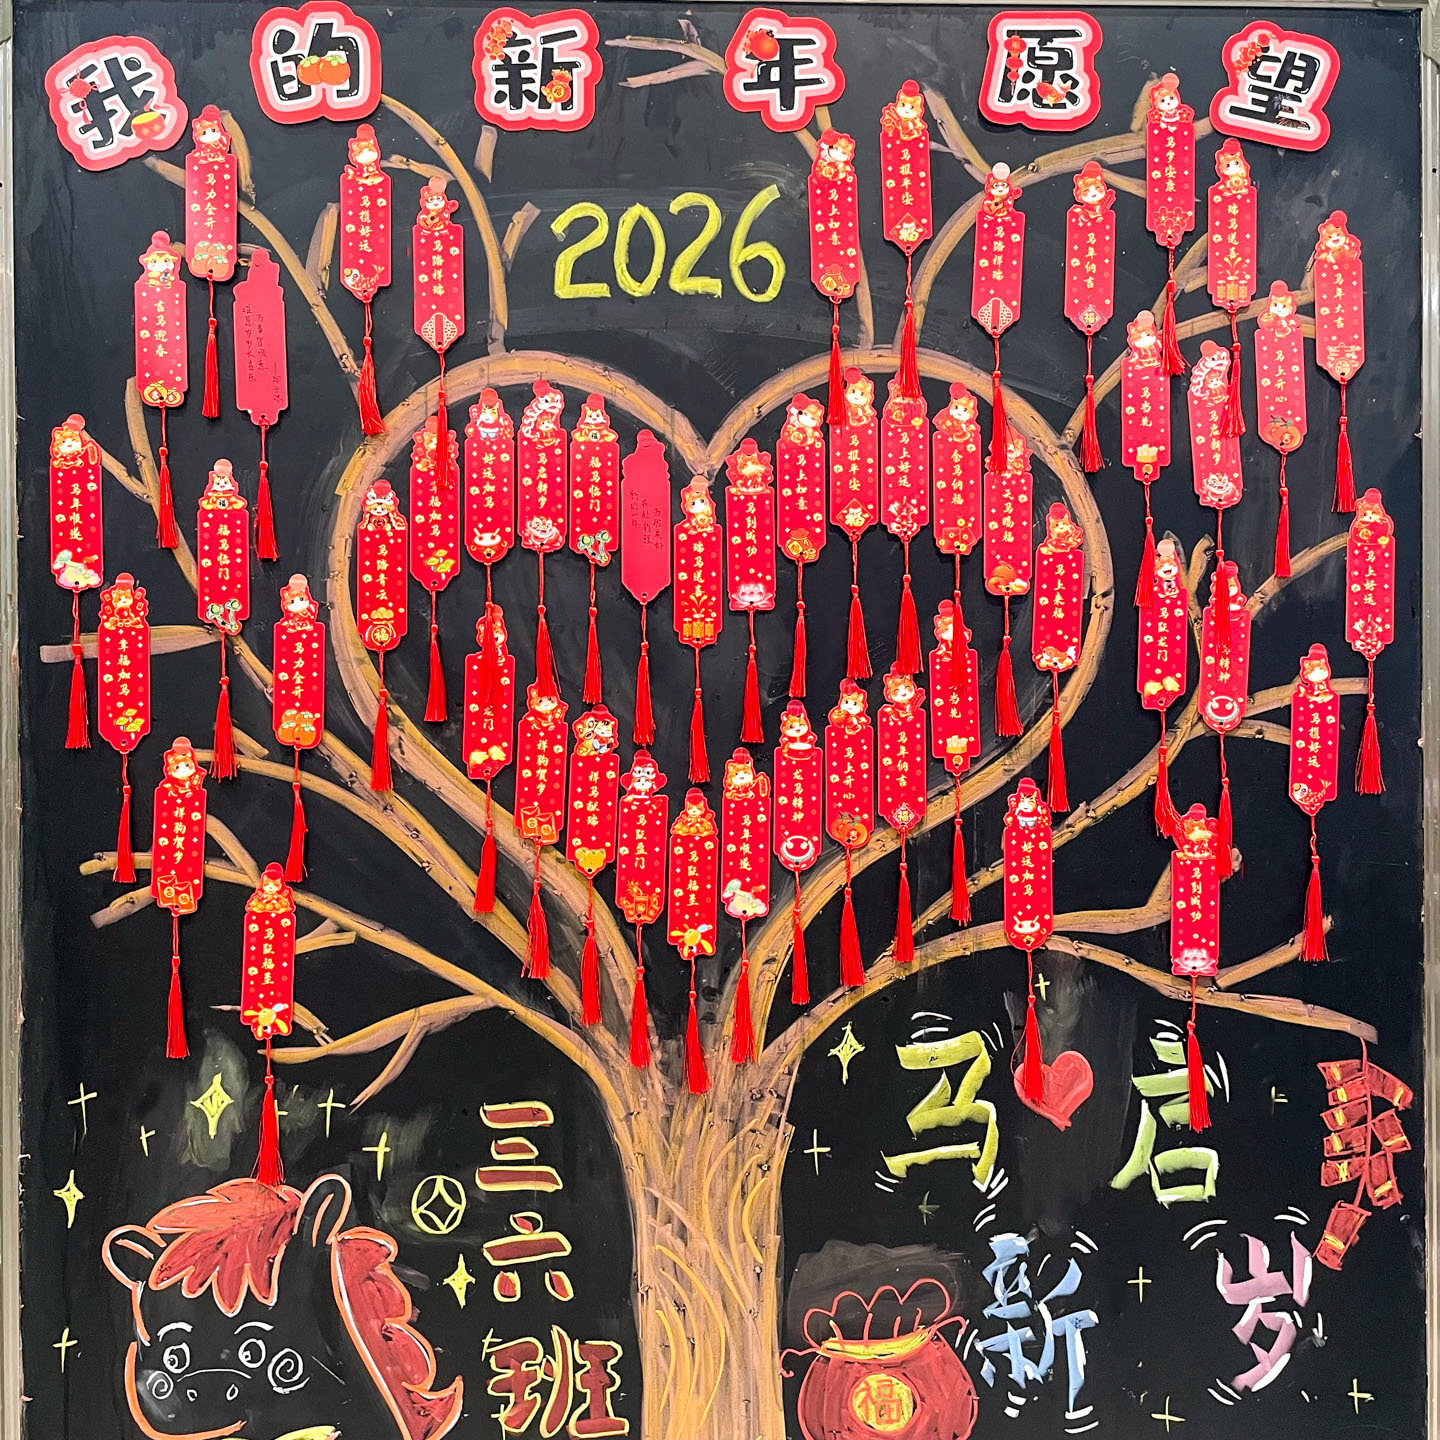 我的新年愿望
2026
马力全开
马揽好运
马踏祥瑞
马上如意
马报平安
马踏祥瑞
马年纳吉
马步安康
瑞马送喜
马年大吉
吉马迎春
万事皆顺意
一马当先
马启新岁
马上开心
马年顺遂
福马临门
马踏青云
幸福加马
好运加马
马启新岁
福马临门
瑞马送喜
马到成功
马上如意
马报平安
马上好运
金马纳福
天马赐福
马上来福
马跃龙门
马精神
马上好运
幸福加马
马力全开
龙门
祥驹贺岁
祥马献瑞
马跃盛门
马跃福至
马年顺遂
龙马精神
马上开心
马年纳吉
当先
马揽好运
祥驹贺岁
马跃福至
好运加马
马到成功
三六班
马启新岁
福